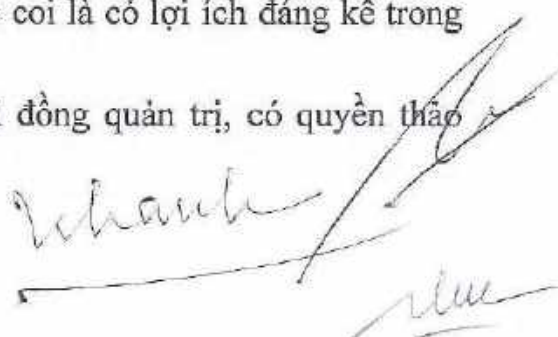 coi là có lợi ích đáng kể trong
đồng quản trị, có quyền thảo
Khanh